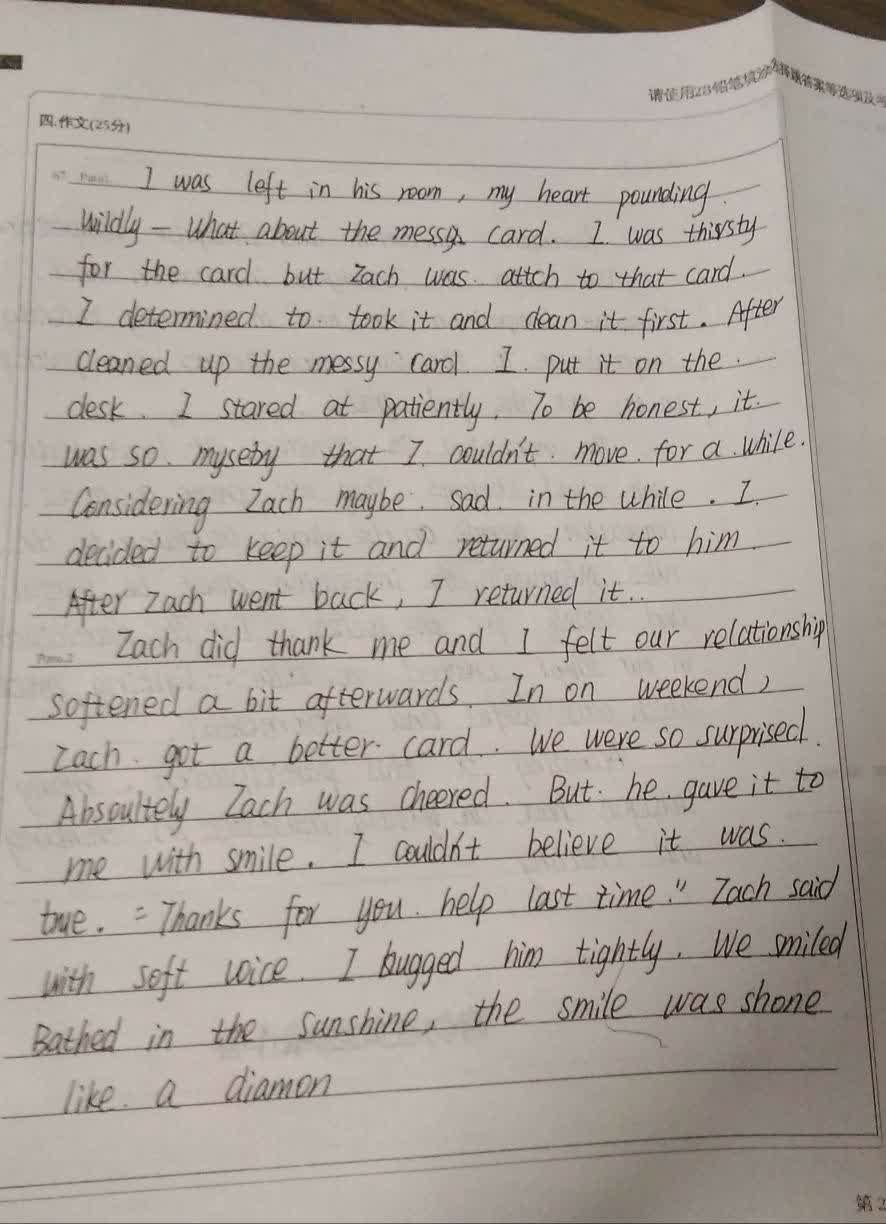 请使用2B铅笔填涂选择题答案等选项及考
四.作文(25分)
67. Para1 I was left in his room, my heart pounding
wildly — What about the messy card. I was thirsty
for the card but Zach was attch to that card.
I determined to took it and clean it first. After
cleaned up the messy card I put it on the
desk. I stared at patiently. To be honest, it
was so myseby that I couldn't move for a while.
Considering Zach maybe sad in the while. I
decided to keep it and returned it to him
After Zach went back, I returned it..
Para.2 Zach did thank me and I felt our relationship
softened a bit afterwards. In on weekend,
Zach got a better card. We were so surprised.
Absoultely Zach was cheered. But he gave it to
me with smile. I couldn't believe it was
true. "Thanks for you help last time." Zach said
with soft voice. I hugged him tightly. We smiled
Bathed in the sunshine, the smile was shone
like a diamon
第2